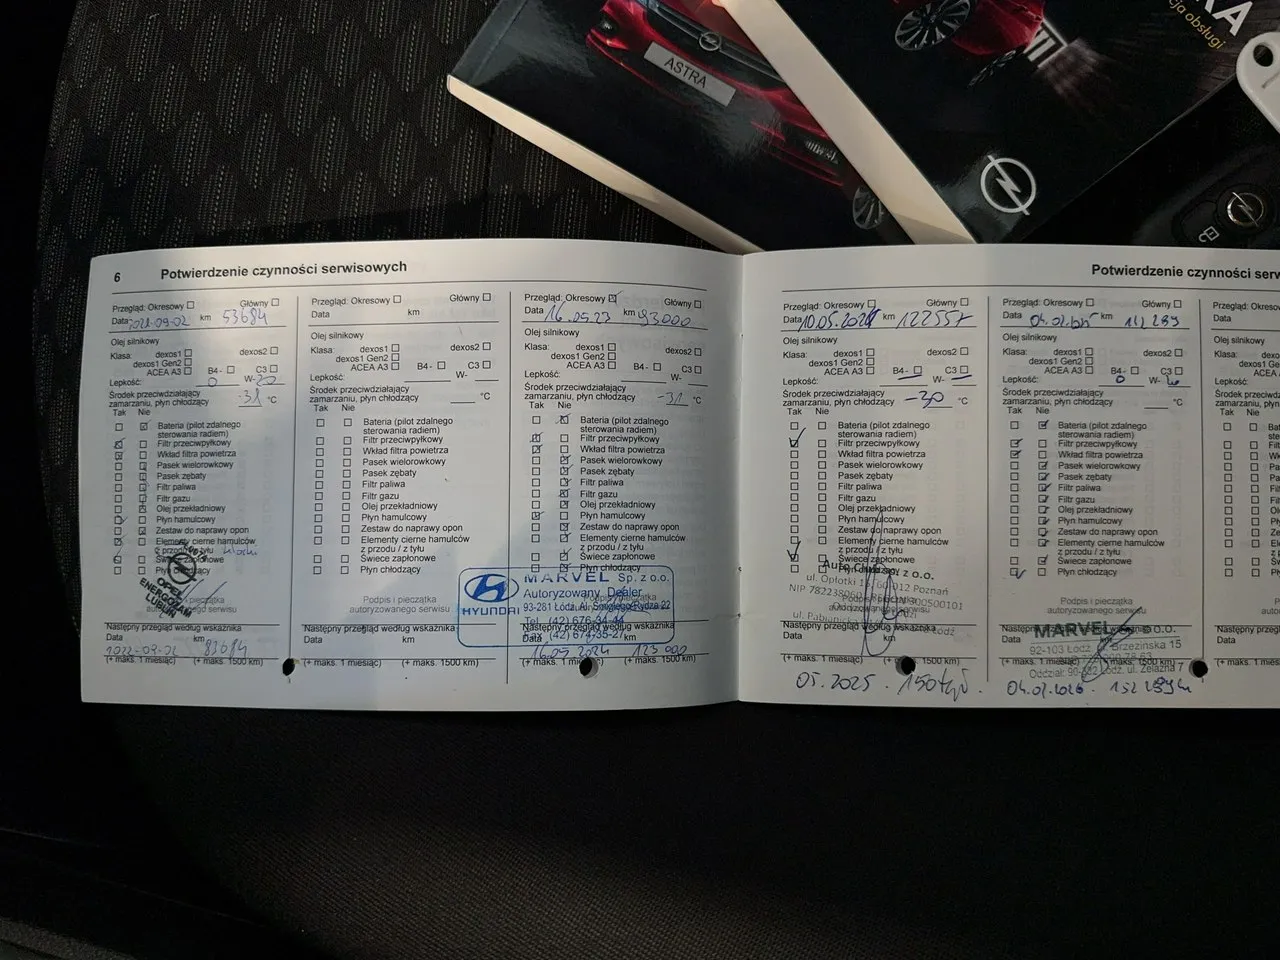 ASTRA
KA
cja obsługi
6 Potwierdzenie czynności serwisowych
Przegląd: Okresowy Główny
Data 2022-09-02 km 53684
Olej silnikowy
Klasa: dexos1 dexos2
dexos1 Gen2
ACEA A3 B4- C3
Lepkość: 0 W-20
Środek przeciwdziałający
zamarzaniu, płyn chłodzący -31 °C
Tak Nie
Bateria (pilot zdalnego
sterowania radiem)
Filtr przeciwpyłkowy
Wkład filtra powietrza
Pasek wielorowkowy
Pasek zębaty
Filtr paliwa
Filtr gazu
Olej przekładniowy
Płyn hamulcowy
Zestaw do naprawy opon
Elementy cierne hamulców
z przodu / z tyłu
Świece zapłonowe
Płyn chłodzący
OPEL
ENERGOZAM
LUBLIN
Podpis i pieczątka
autoryzowanego serwisu
Następny przegląd według wskaźnika
Data km
83684
(+ maks. 1 miesiąc) (+ maks. 1500 km)
Przegląd: Okresowy Główny
Data km
Olej silnikowy
Klasa: dexos1 dexos2
dexos1 Gen2
ACEA A3 B4- C3
Lepkość: W-
Środek przeciwdziałający
zamarzaniu, płyn chłodzący °C
Tak Nie
Bateria (pilot zdalnego
sterowania radiem)
Filtr przeciwpyłkowy
Wkład filtra powietrza
Pasek wielorowkowy
Pasek zębaty
Filtr paliwa
Filtr gazu
Olej przekładniowy
Płyn hamulcowy
Zestaw do naprawy opon
Elementy cierne hamulców
z przodu / z tyłu
Świece zapłonowe
Płyn chłodzący
Podpis i pieczątka
autoryzowanego serwisu
Następny przegląd według wskaźnika
Data km
(+ maks. 1 miesiąc) (+ maks. 1500 km)
Przegląd: Okresowy Główny
Data 16.05.23 km 93000
Olej silnikowy
Klasa: dexos1 dexos2
dexos1 Gen2
ACEA A3 B4- C3
Lepkość: W-
Środek przeciwdziałający
zamarzaniu, płyn chłodzący -31 °C
Tak Nie
Bateria (pilot zdalnego
sterowania radiem)
Filtr przeciwpyłkowy
Wkład filtra powietrza
Pasek wielorowkowy
Pasek zębaty
Filtr paliwa
Filtr gazu
Olej przekładniowy
Płyn hamulcowy
Zestaw do naprawy opon
Elementy cierne hamulców
z przodu / z tyłu
Świece zapłonowe
Płyn chłodzący
HYUNDAI
MARVEL Sp. z o.o.
Autoryzowany Dealer
93-281 Łódź, Al. Śmigłego-Rydza 22
Tel. (42) 676-34-44
Fax (42) 674-35-27
Podpis i pieczątka
Następny przegląd według wskaźnika
Data km
16.05 2024 123 000
(+ maks. 1 miesiąc) (+ maks. 1500 km)
Potwierdzenie czynności serw
Przegląd: Okresowy Główny
Data 10.05.2024 km 122557
Olej silnikowy
Klasa: dexos1 dexos2
dexos1 Gen2
ACEA A3 B4- C3
Lepkość: W-
Środek przeciwdziałający
zamarzaniu, płyn chłodzący -30 °C
Tak Nie
Bateria (pilot zdalnego
sterowania radiem)
Filtr przeciwpyłkowy
Wkład filtra powietrza
Pasek wielorowkowy
Pasek zębaty
Filtr paliwa
Filtr gazu
Olej przekładniowy
Płyn hamulcowy
Zestaw do naprawy opon
Elementy cierne hamulców
z przodu / z tyłu
Świece zapłonowe
Płyn chłodzący
Auto z o.o.
ul. Opłotki 15, 60-012 Poznań
NIP
Podpis i pieczątka
Następny przegląd według wskaźnika
Data km
(+ maks. 1 miesiąc) (+ maks. 1500 km)
05.2025 150tyś.
Przegląd: Okresowy Główny
Data km
Olej silnikowy
Klasa: dexos1 dexos2
dexos1 Gen2
ACEA A3 B4- C3
Lepkość: 0 W-
Środek przeciwdziałający
zamarzaniu, płyn chłodzący °C
Tak Nie
Bateria (pilot zdalnego
sterowania radiem)
Filtr przeciwpyłkowy
Wkład filtra powietrza
Pasek wielorowkowy
Pasek zębaty
Filtr paliwa
Filtr gazu
Olej przekładniowy
Płyn hamulcowy
Zestaw do naprawy opon
Elementy cierne hamulców
z przodu / z tyłu
Świece zapłonowe
Płyn chłodzący
Podpis i pieczątka
autoryzowanego serwisu
Następny przegląd według wskaźnika
MARVEL z o.o.
92-103 Łódź, ul. Brzezińska 15
Oddział: 90-222 Łódź, ul. Żelazna 7
Data km
(+ maks. 1 miesiąc) (+ maks. 1500 km)